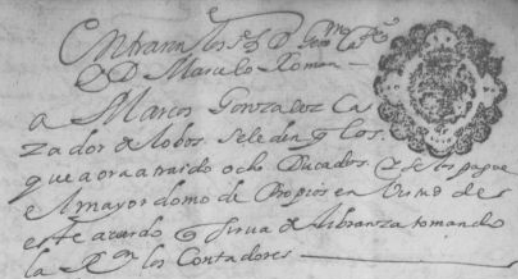 Entraron los s.es D. Ger.mo
D. Marcelo Roman —
a Marcos Gonzalez Ca
zador de lobos se le den q los
que aora a traido ocho Ducados. y se los pague
el mayordomo de Propios en Virtud de
este acuerdo q sirua de libranza tomando
la R.on los Contadores —